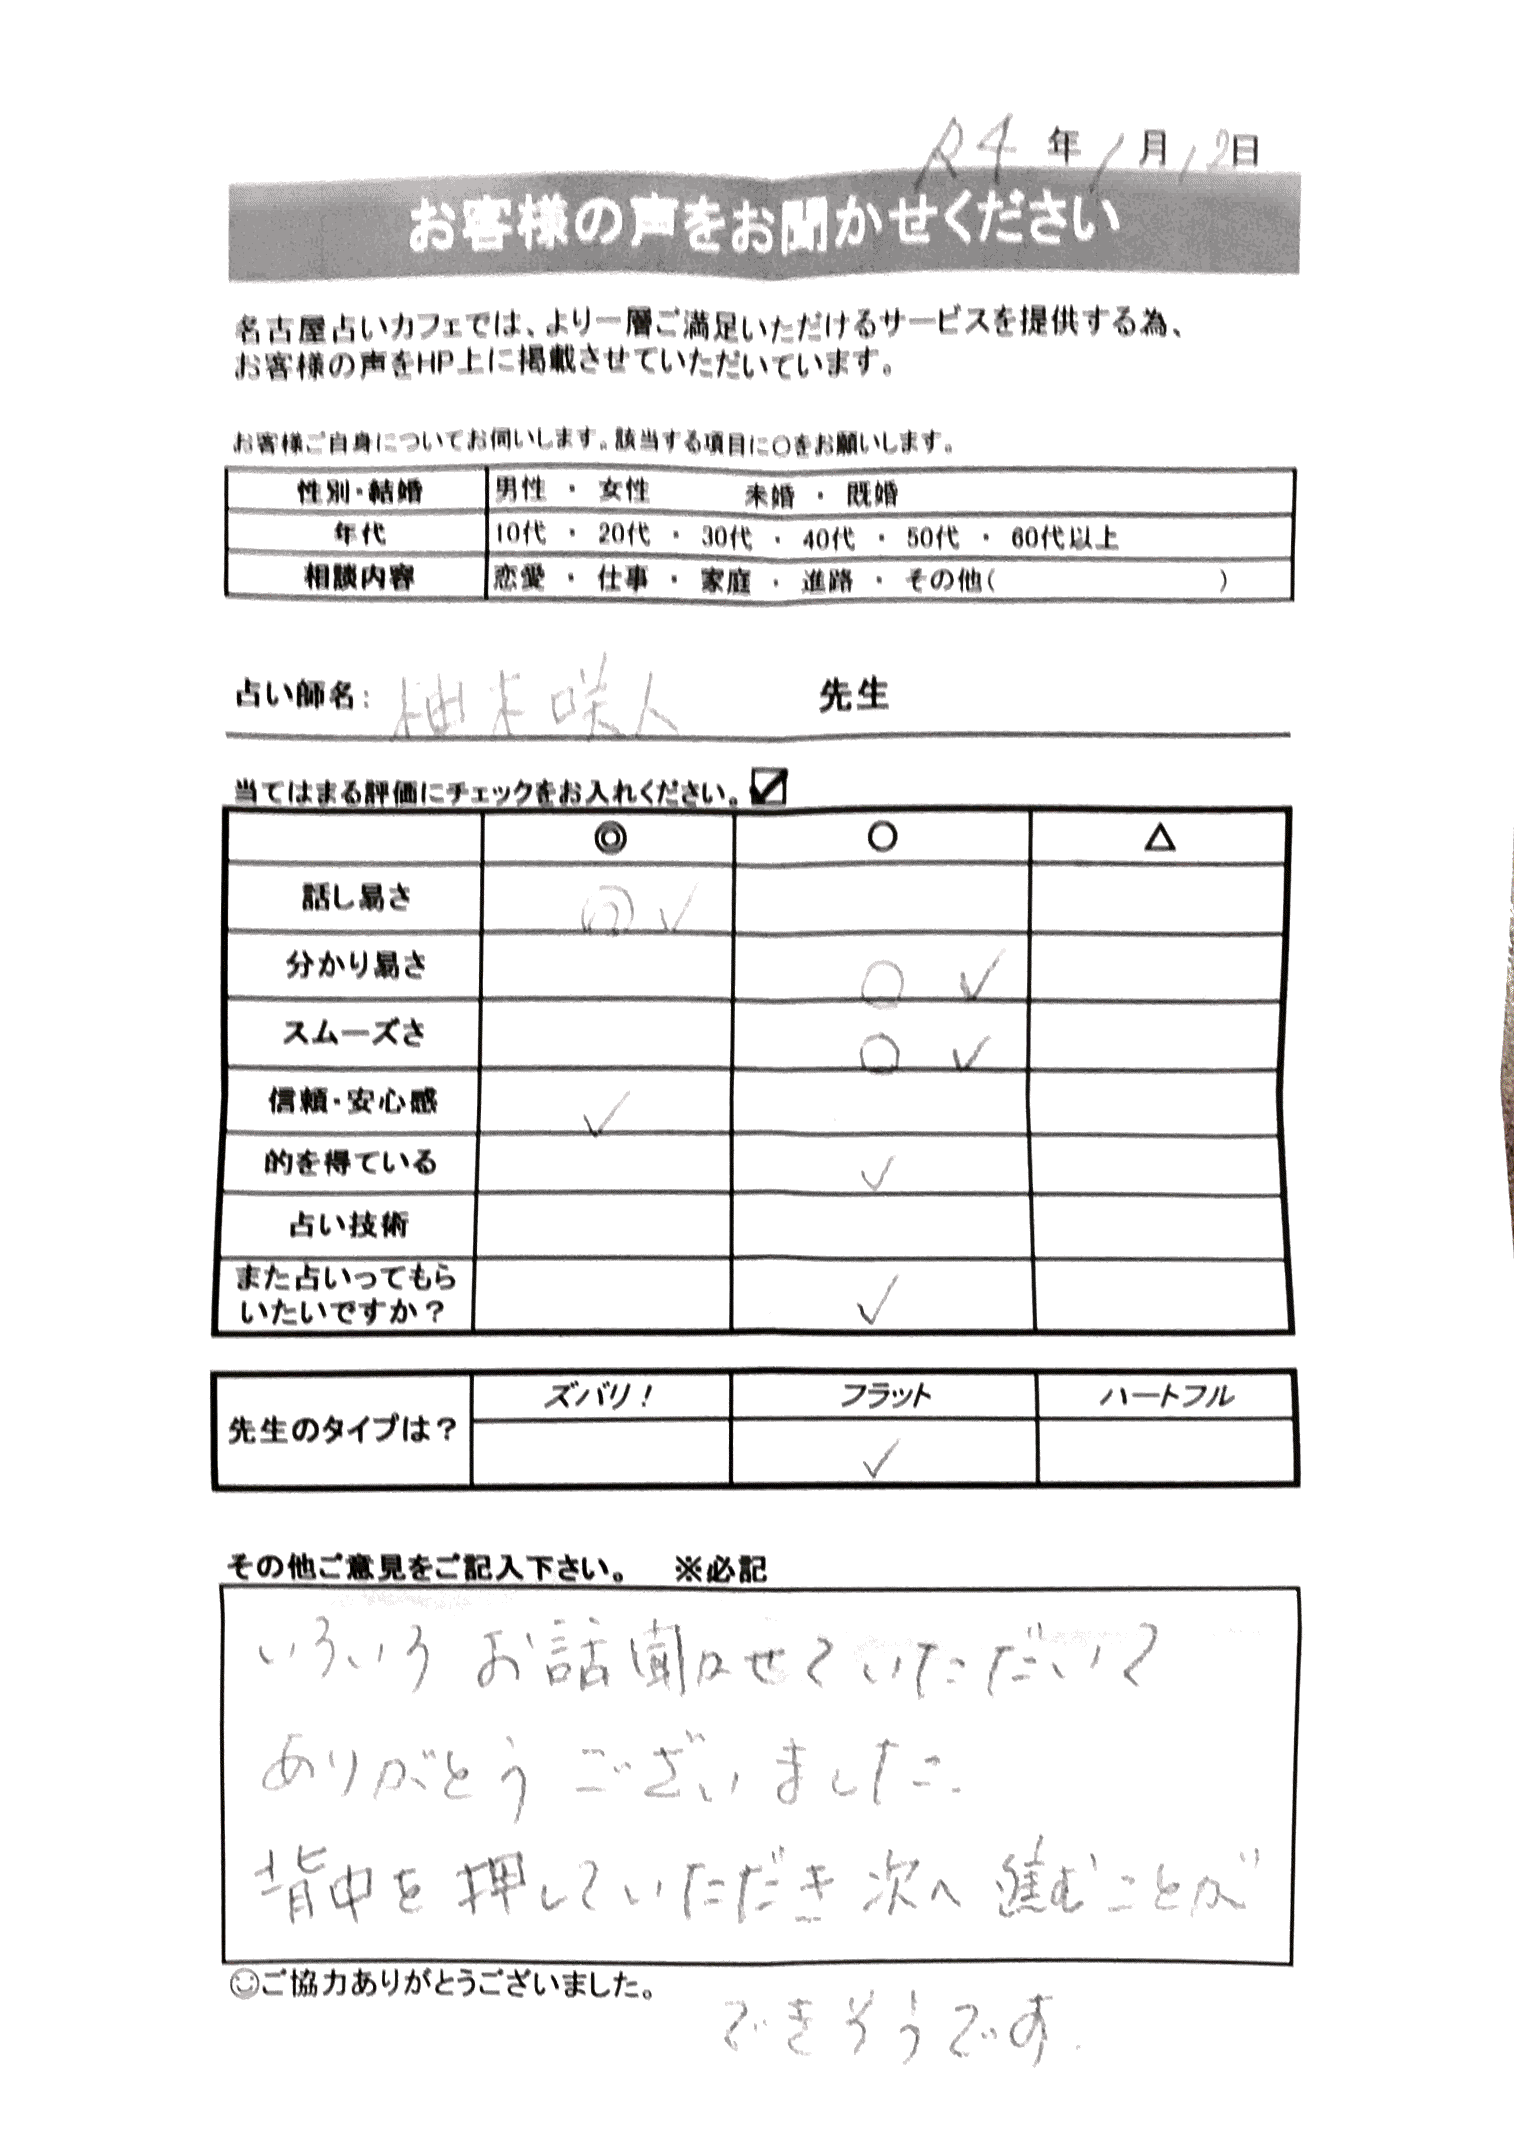 R4年1月12日
お客様の声をお聞かせください
名古屋占いカフェでは、より一層ご満足いただけるサービスを提供する為、
お客様の声をHP上に掲載させていただいています。
お客様ご自身についてお伺いします。該当する項目に○をお願いします。
性別・結婚 男性 ・ 女性 未婚 ・ 既婚
年代 10代 ・ 20代 ・ 30代 ・ 40代 ・ 50代 ・ 60代以上
相談内容 恋愛 ・ 仕事 ・ 家庭 ・ 進路 ・ その他( )
占い師名: 柚木咲人 先生
当てはまる評価にチェックをお入れください。☑
◎ ○ △
話し易さ ◎ ✓
分かり易さ ○ ✓
スムーズさ ○ ✓
信頼・安心感 ✓
的を得ている ✓
占い技術
また占いってもら
いたいですか? ✓
ズバリ! フラット ハートフル
先生のタイプは? ✓
その他ご意見をご記入下さい。 ※必記
いろいろお話聞かせていただいて
ありがとうございました。
背中を押していただき次へ進むことが
☺ご協力ありがとうございました。
できそうです。